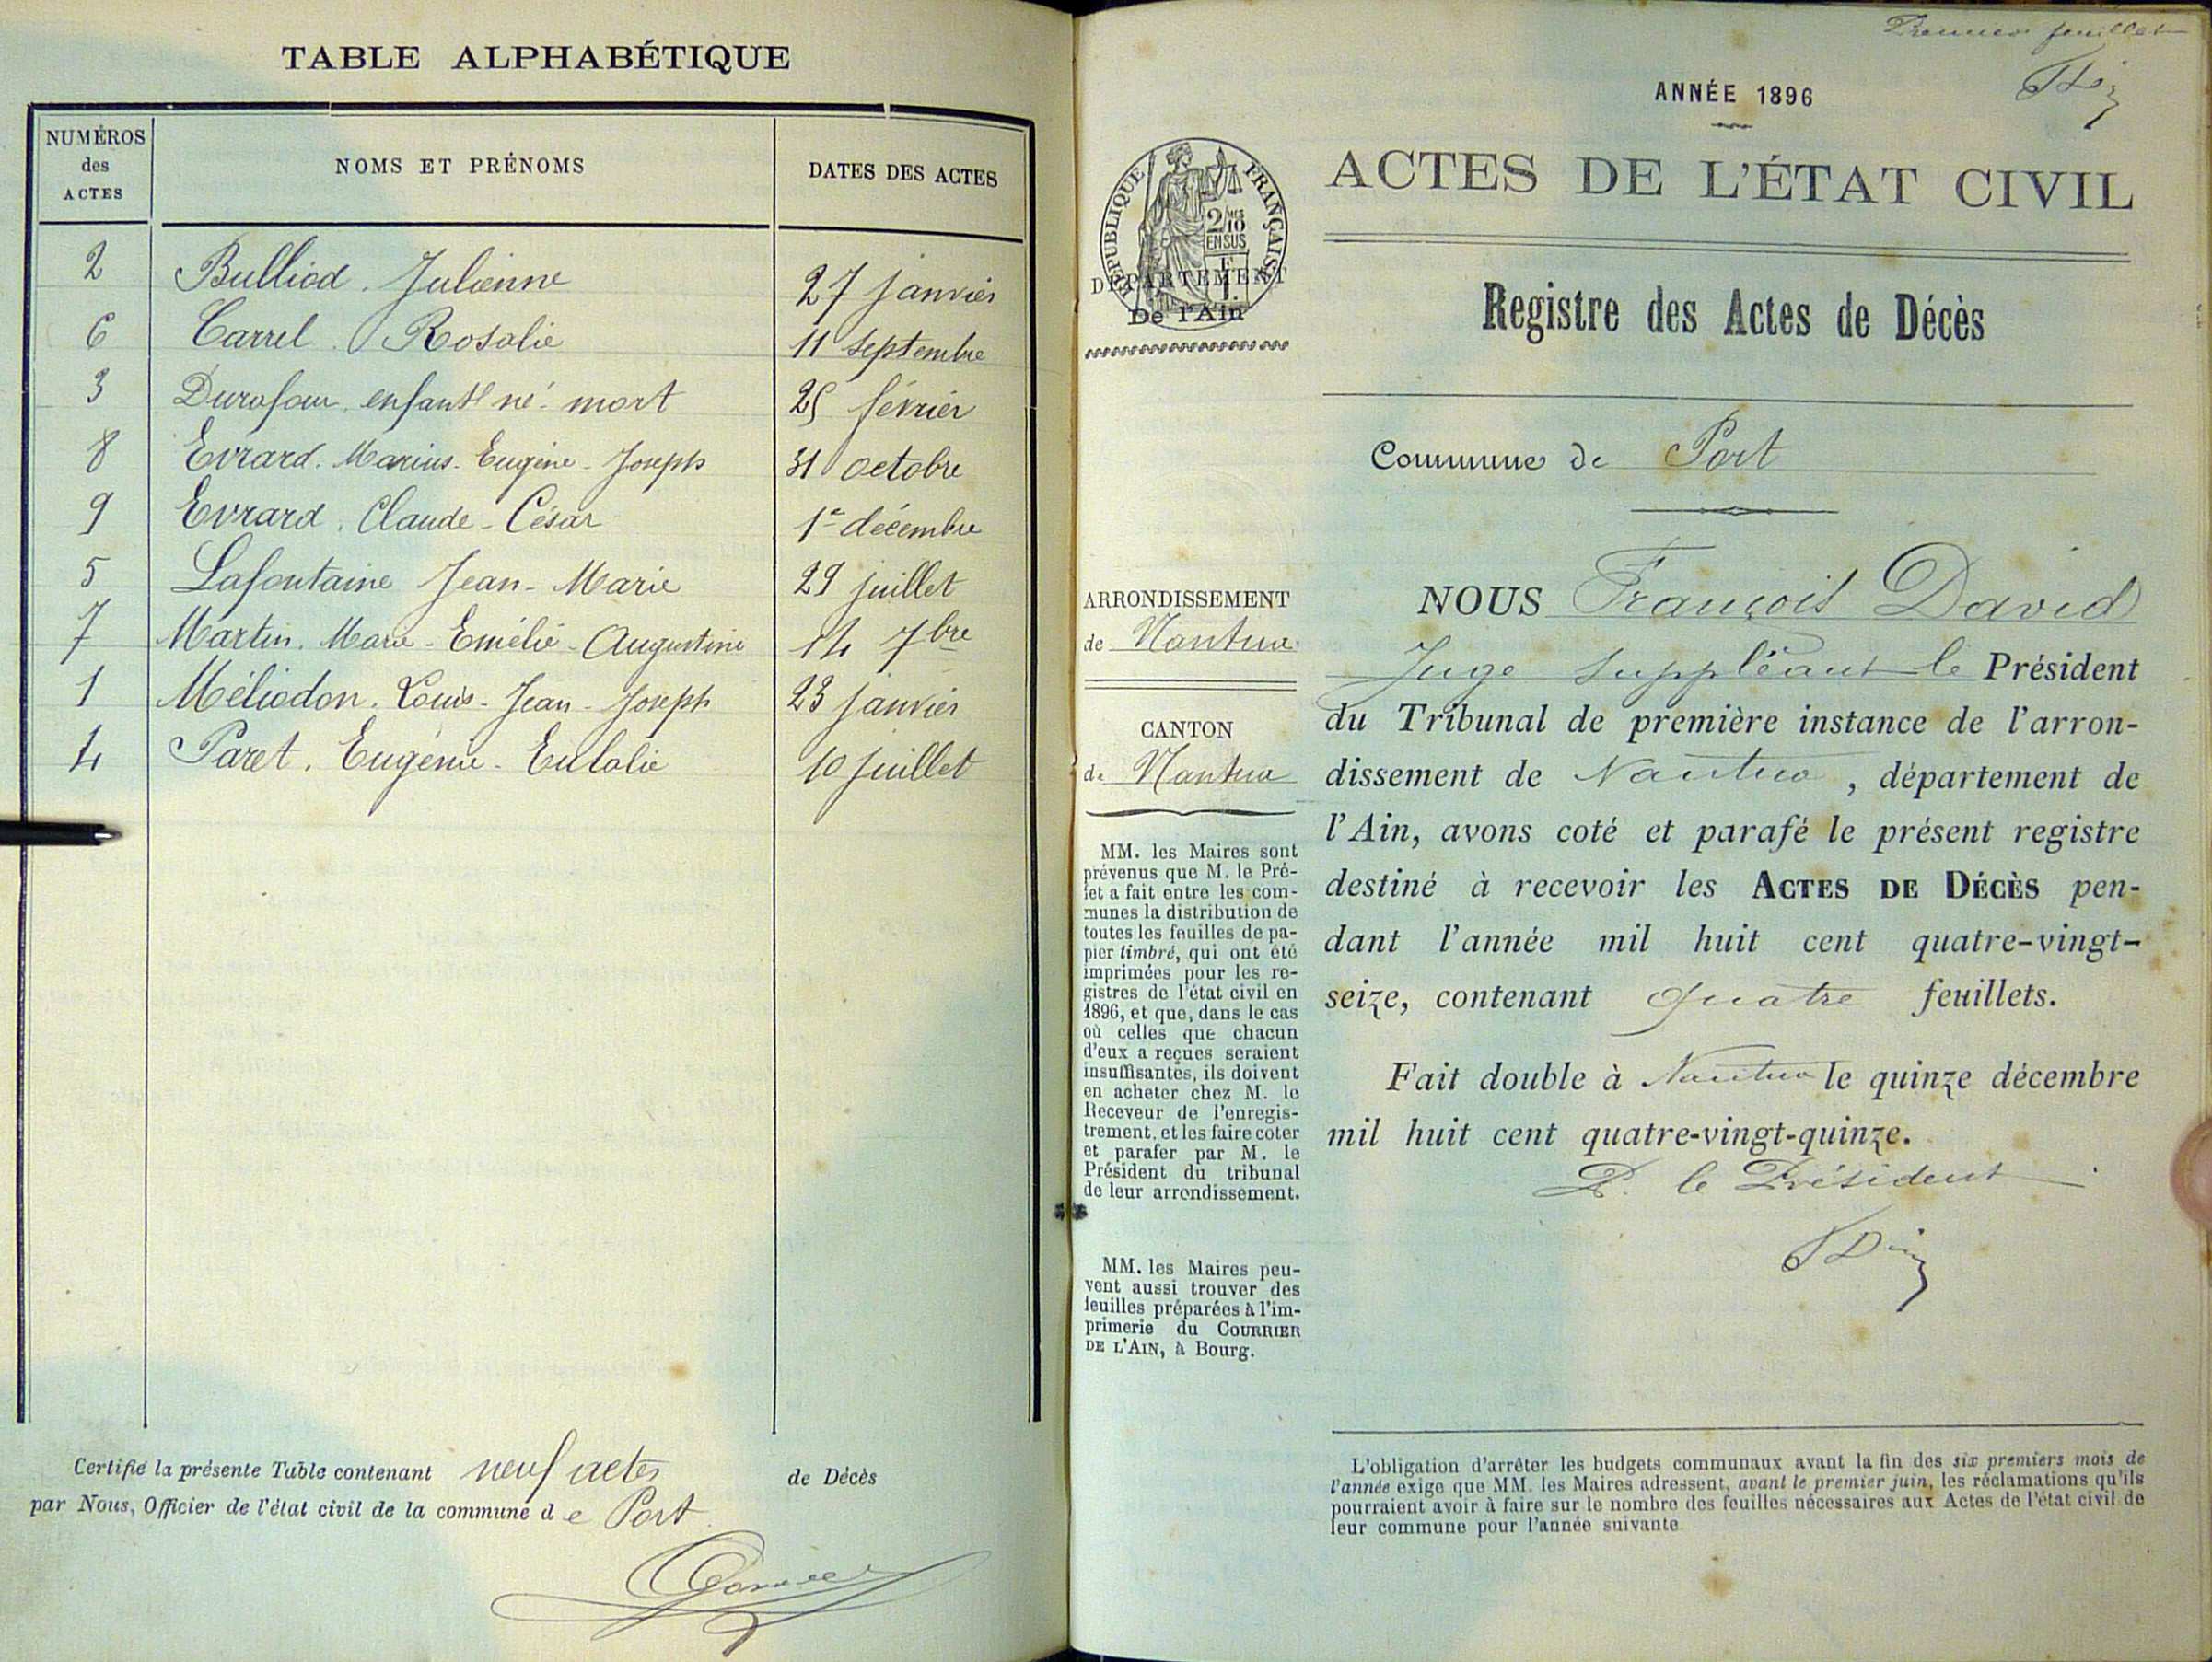 TABLE ALPHABÉTIQUE
NUMÉROS
des
ACTES
NOMS ET PRÉNOMS
DATES DES ACTES
2 Bulliod. Julienne 27 janvier
6 Carrel. Rosalie 11 septembre
3 Durafour enfant né-mort 25 février
8 Evrard. Marius-Eugène-Joseph 31 octobre
9 Evrard. Claude-César 1er décembre
5 Lafontaine Jean-Marie 29 juillet
7 Martin. Marie-Emélie-Augustine 14 7bre
1 Méliodon. Louis-Jean-Joseph 23 janvier
4 Paret. Eugénie-Eulalie 10 juillet
Certifié la présente Table contenant neuf actes de Décès
par Nous, Officier de l'état civil de la commune de Port
Premier feuillet
ANNÉE 1896
RÉPUBLIQUE FRANÇAISE
2/10
EN SUS
1 F.
DÉPARTEMENT
De l'Ain
ACTES DE L'ÉTAT CIVIL
Registre des Actes de Décès
Commune de Port
ARRONDISSEMENT
de Nantua
CANTON
de Nantua
MM. les Maires sont
prévenus que M. le Pré-
fet a fait entre les com-
munes la distribution de
toutes les feuilles de pa-
pier timbré, qui ont été
imprimées pour les re-
gistres de l'état civil en
1896, et que, dans le cas
où celles que chacun
d'eux a reçues seraient
insuffisantes, ils doivent
en acheter chez M. le
Receveur de l'enregis-
trement, et les faire coter
et parafer par M. le
Président du tribunal
de leur arrondissement.
MM. les Maires peu-
vent aussi trouver des
feuilles préparées à l'im-
primerie du COURRIER
DE L'AIN, à Bourg.
NOUS François David
Juge Suppléant le Président
du Tribunal de première instance de l'arron-
dissement de Nantua, département de
l'Ain, avons coté et parafé le présent registre
destiné à recevoir les ACTES DE DÉCÈS pen-
dant l'année mil huit cent quatre-vingt-
seize, contenant quatre feuillets.
Fait double à Nantua le quinze décembre
mil huit cent quatre-vingt-quinze.
P. le Président
L'obligation d'arrêter les budgets communaux avant la fin des six premiers mois de
l'année exige que MM. les Maires adressent, avant le premier juin, les réclamations qu'ils
pourraient avoir à faire sur le nombre des feuilles nécessaires aux Actes de l'état civil de
leur commune pour l'année suivante